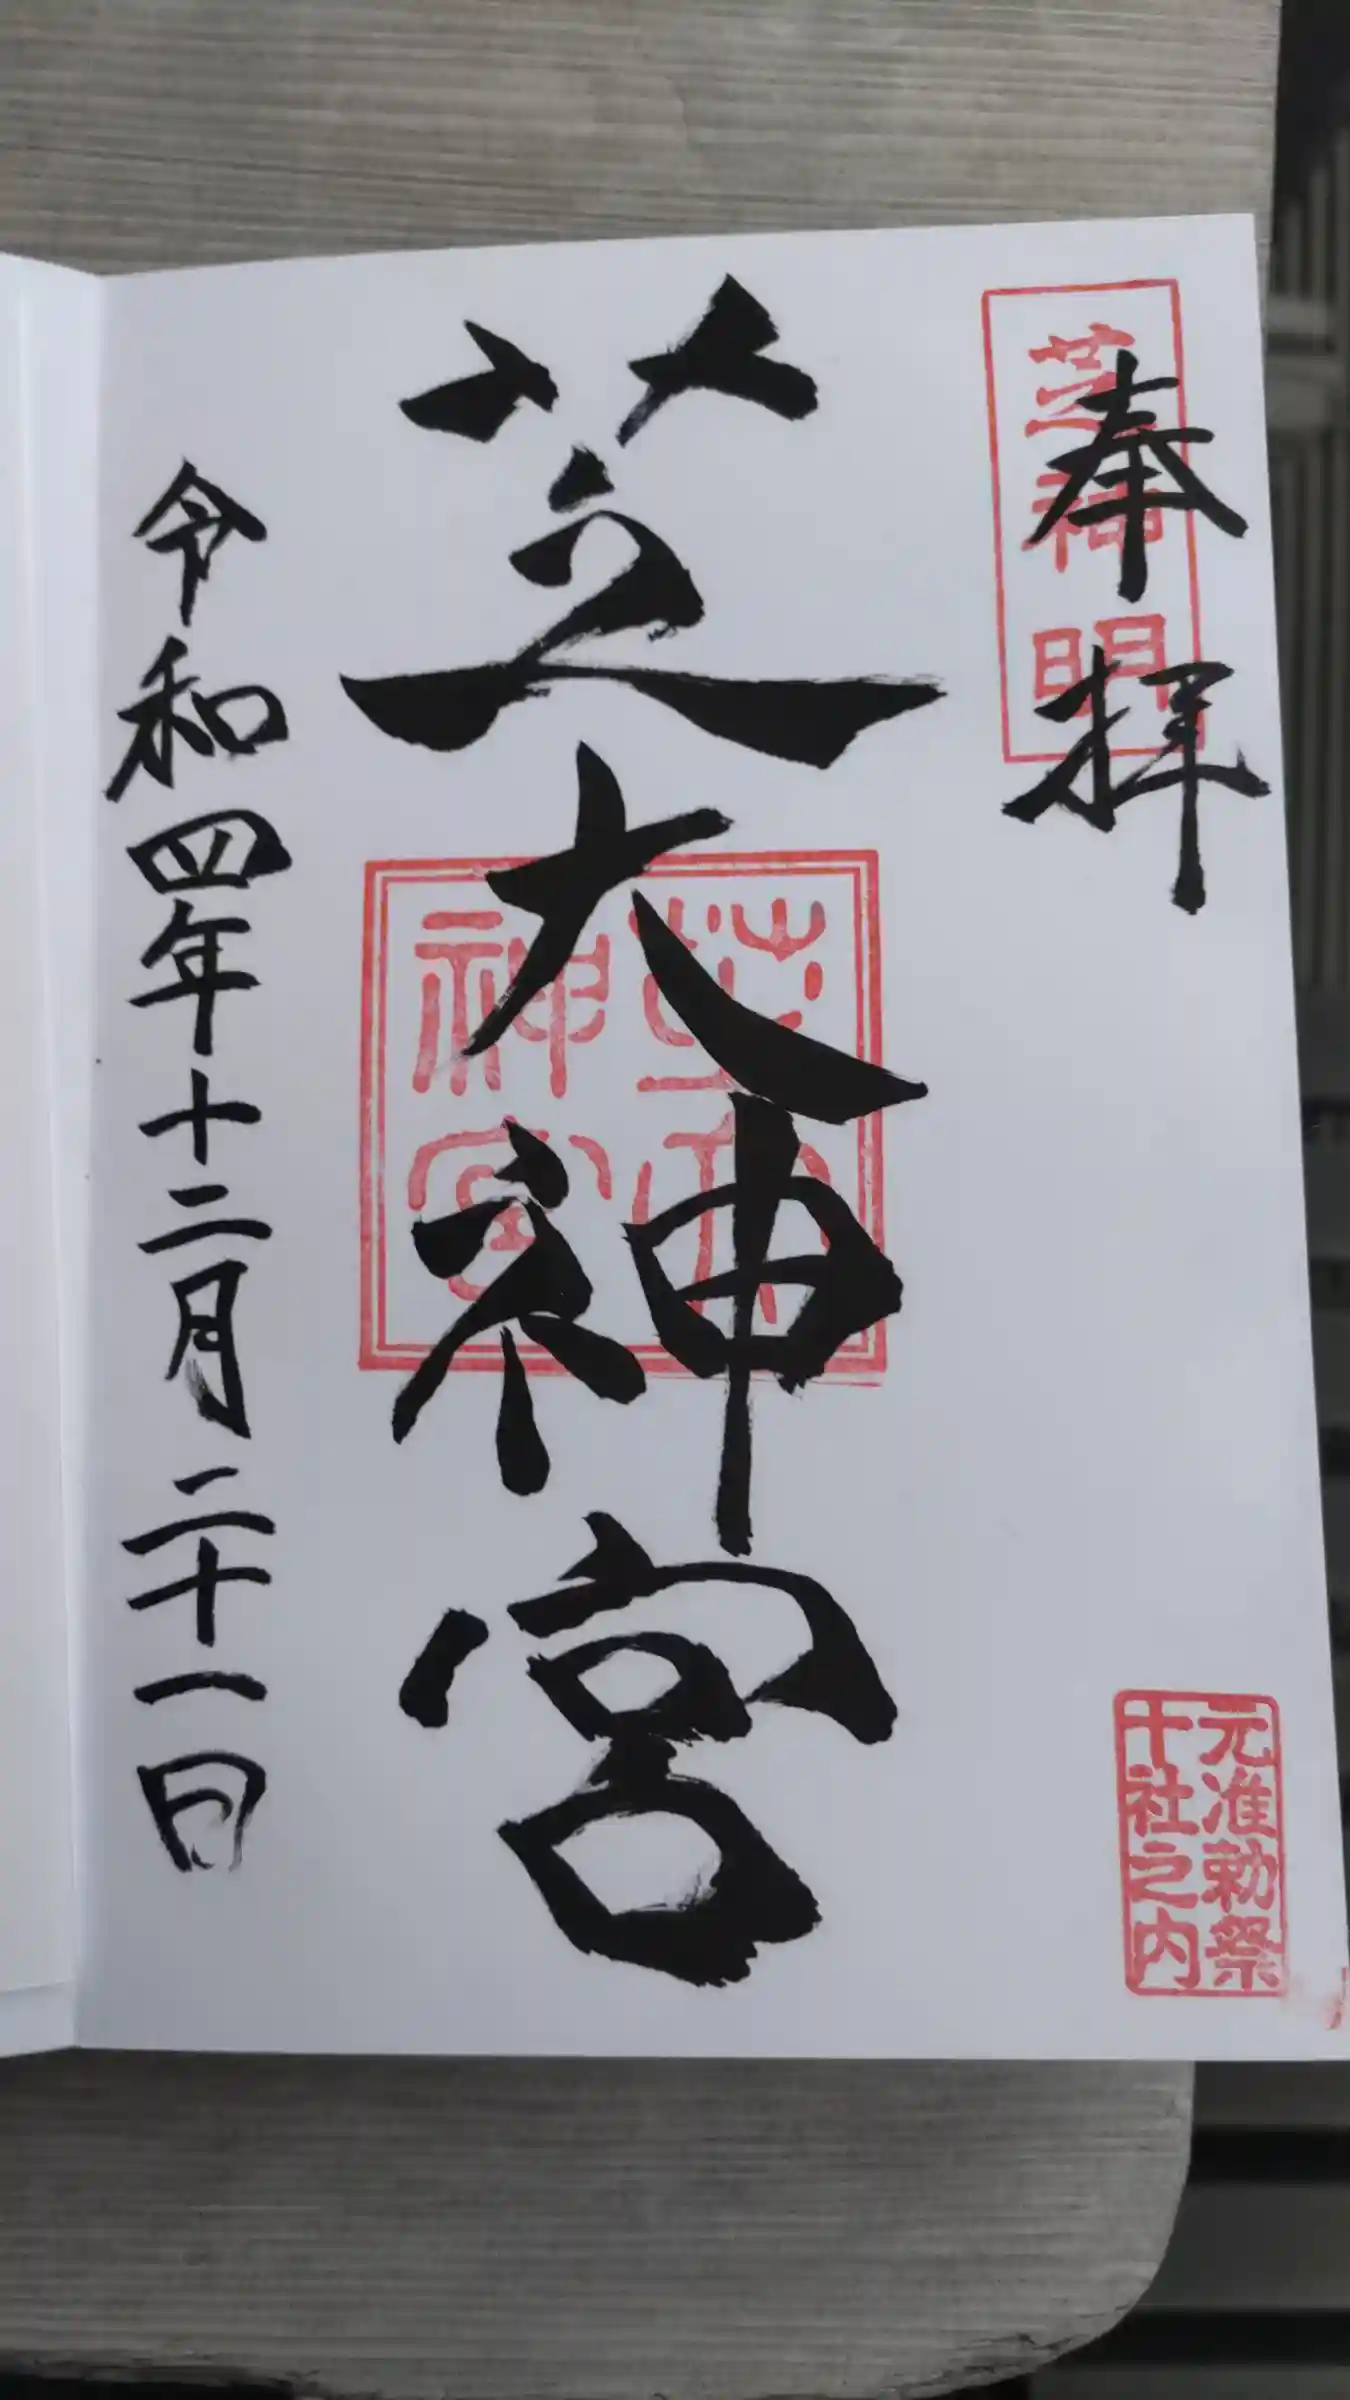 奉拝
芝神明
芝大神宮
芝大神宮
元准勅祭
十社之内
令和四年十二月二十一日